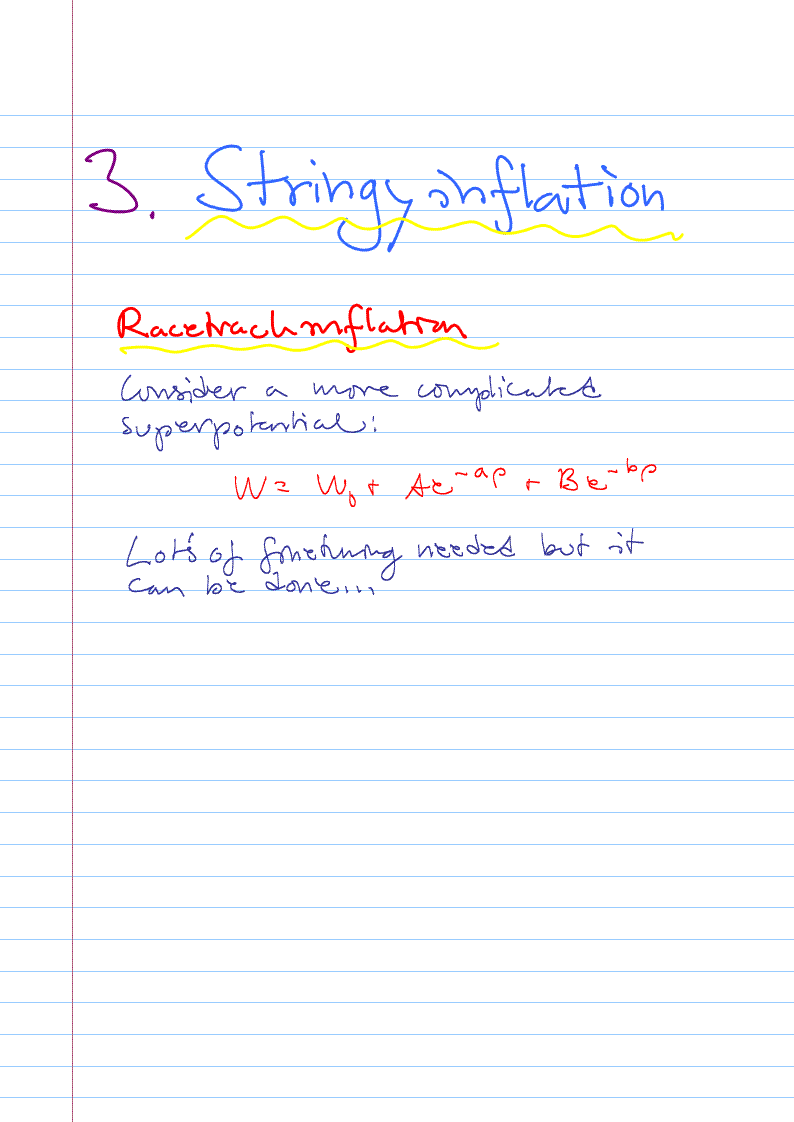 3. Stringy inflation
Racetrack inflation
Consider a more complicated
superpotential:
W = W₀ + Ae^{-aρ} + Be^{-bρ}
Lot's of finetuning needed but it
can be done...